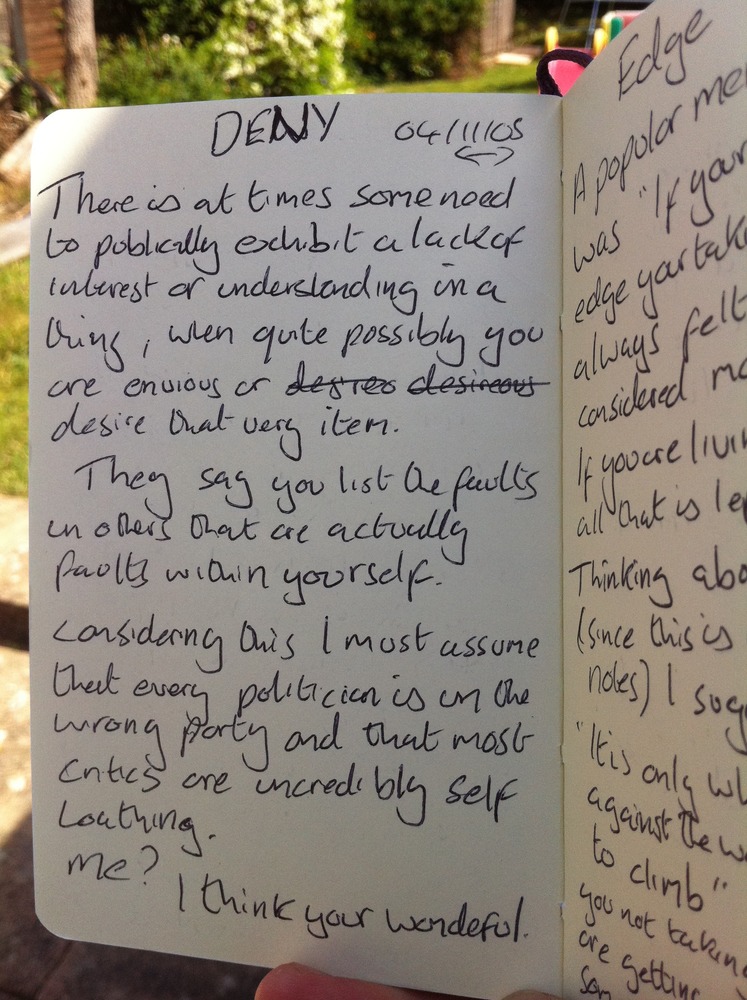 DENY 04/11/05
There is at times some need
to publically exhibit a lack of
interest or understanding in a
thing, when quite possibly you
are envious or desires desireous
desire that very item.
They say you list the faults
in others that are actually
faults within yourself.
Considering this I must assume
that every politician is in the
wrong party and that most
critics are incredibly self
Loathing.
Me?
I think your wonderful.
Edge
A popular
was "If your
edge your
always felt
considered
If you are
all that is
Thinking
(since this is
notes) I
"It is only
against the
to climb"
you not taking
are getting